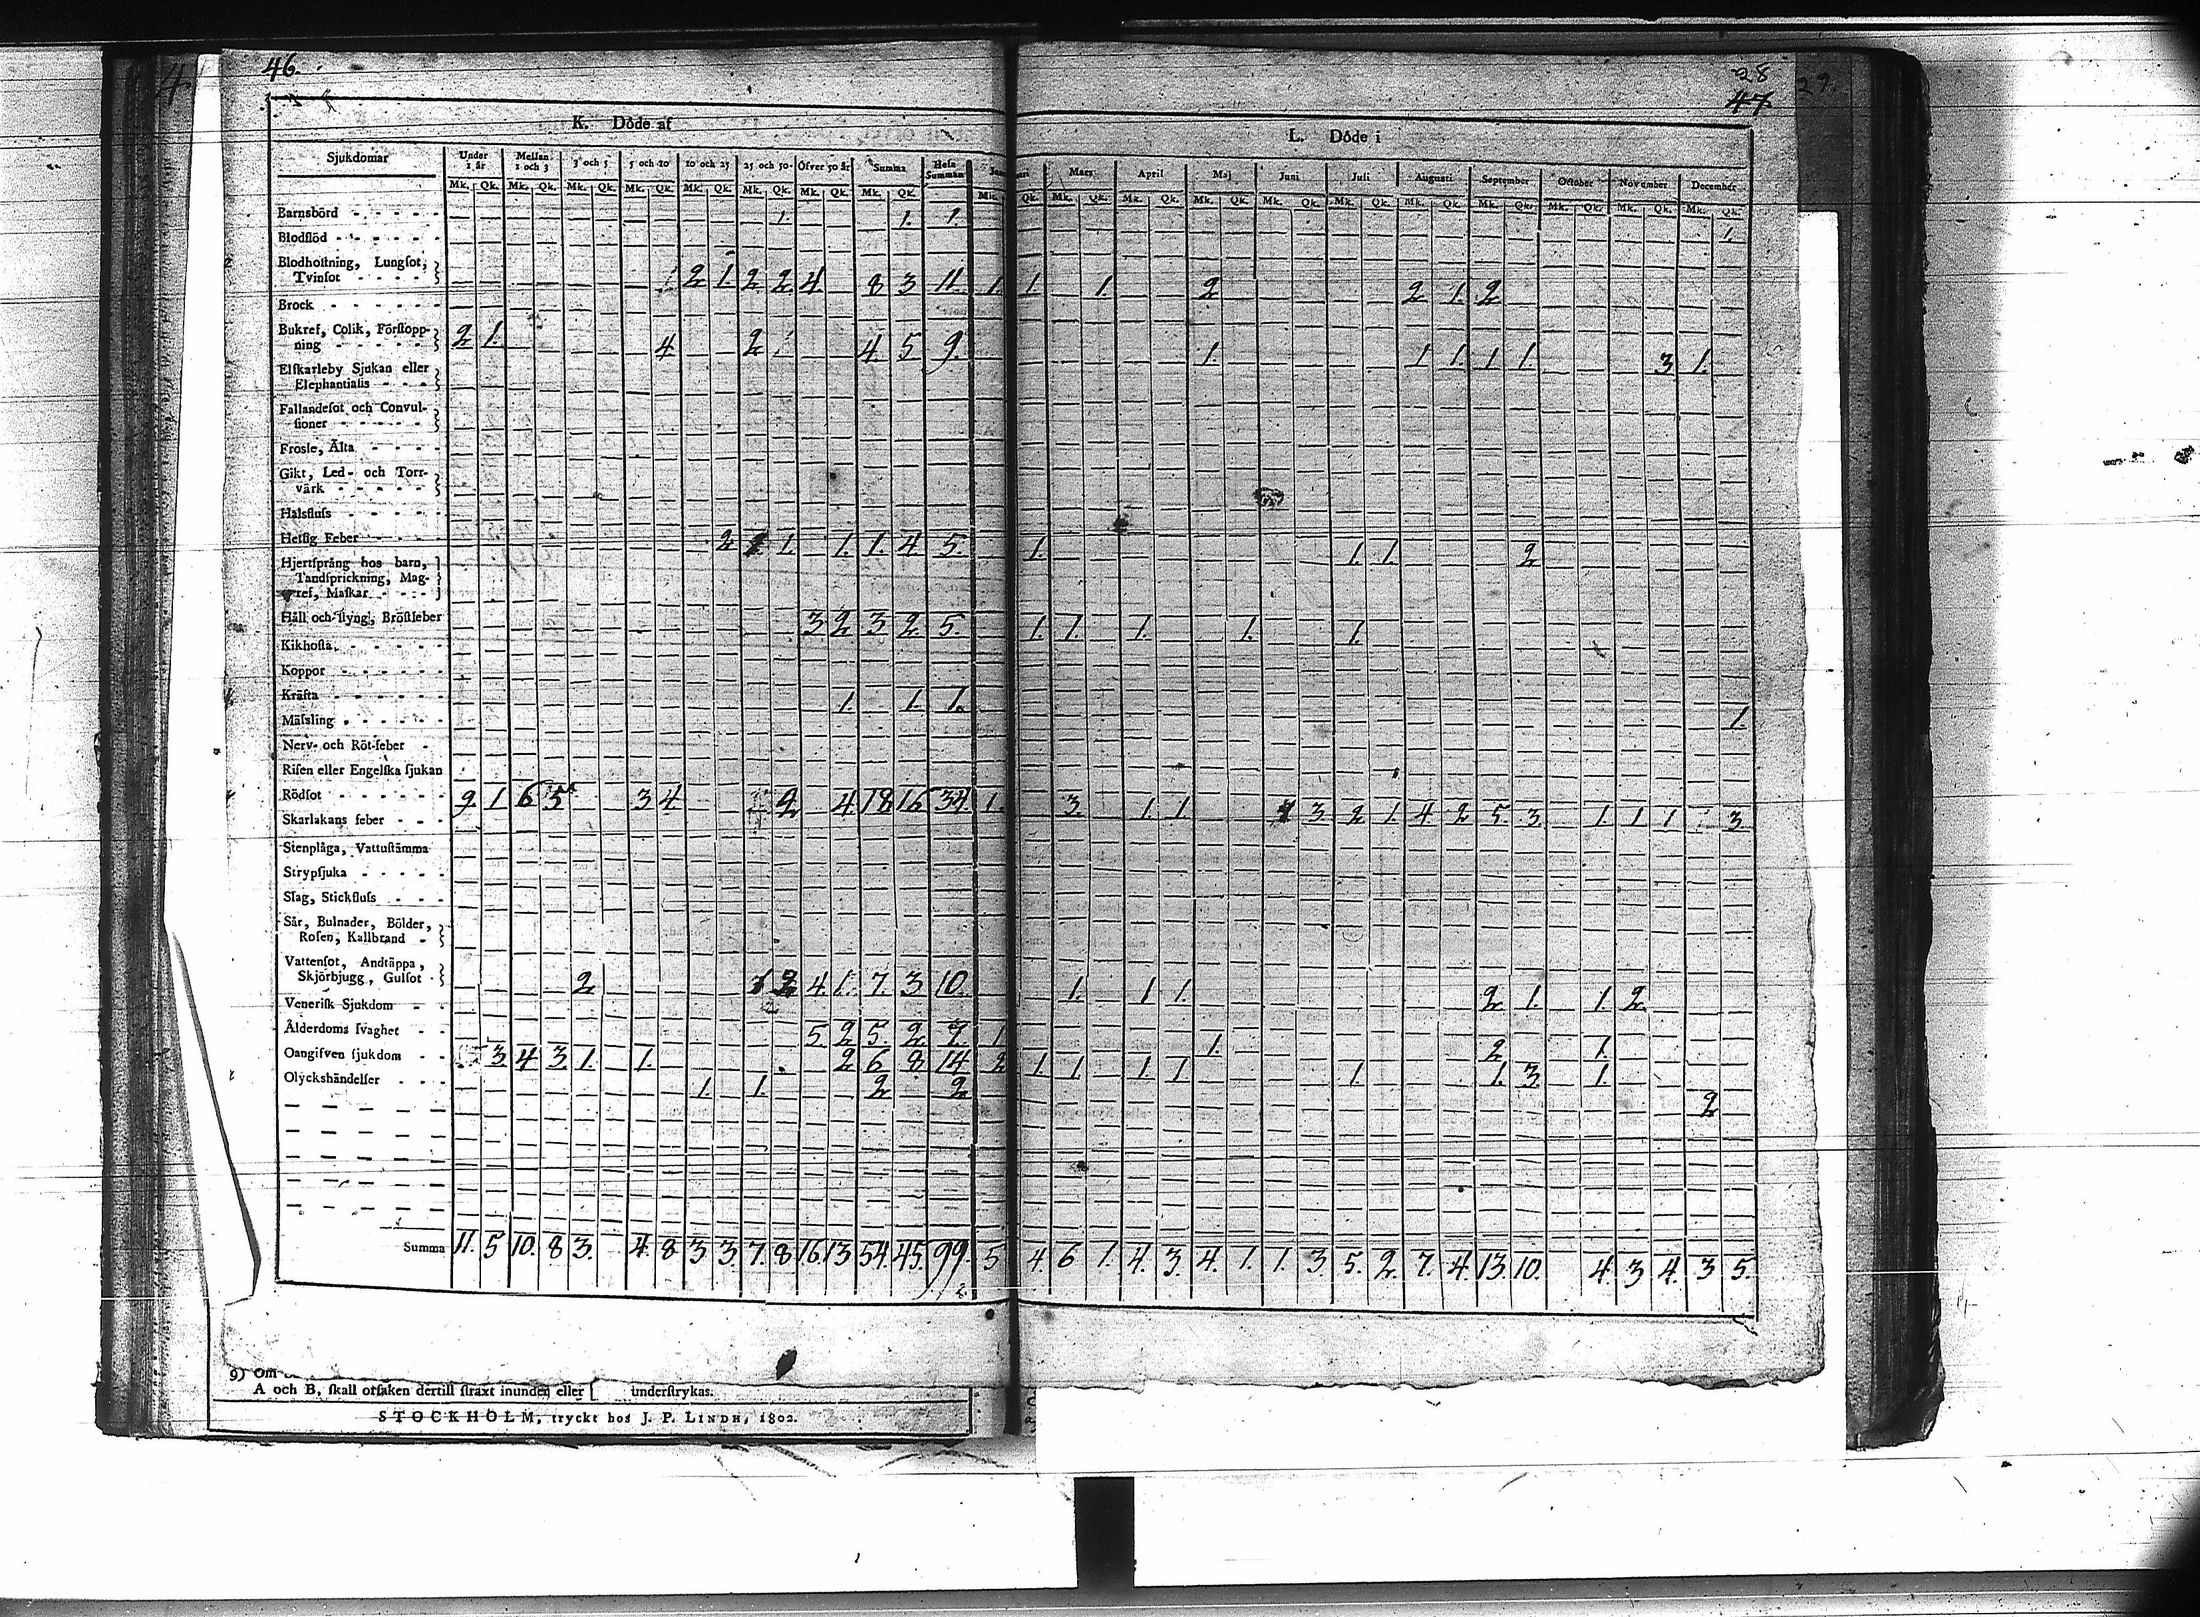 46.
28
47
29.
K. Döde af
L. Döde i
Sjukdomar Under 1 år Mellan 1 och 3 3 och 5 5 och 10 10 och 25 25 och 50. Öfver 50 år Summa Hela Summan Mars April Maj Juni Juli Augusti September October November December
Mk. Qk. Mk. Qk. Mk. Qk. Mk. Qk. Mk. Qk. Mk. Qk. Mk. Qk. Mk. Qk. Mk. Qk. Mk. Qk. Mk. Qk. Mk. Qk. Mk. Qk. Mk. Qk. Mk. Qk. Mk. Qk. Mk. Qk. Mk. Qk. Mk. Qk.
Barnsbörd - - - - - 1. 1. 1. 1.
Blodflöd - - - - - -
Blodhoſtning, Lungſot,
Tvinſot - - - - 2 1. 2 2 4 8 3 11. 1. 1. 1. 2 2 1. 2
Brock - - - - - -
Bukref, Colik, Förſtopp-
ning - - - - - 2 1. 4 2 4 5 9. 1. 1 1. 1 1. 3 1.
Elſkarleby Sjukan eller
Elephantiaſis - - -
Fallandeſot och Convul-
ſioner - - - - -
Froſſe, Älta - - - -
Gikt, Led- och Torr-
värk - - - - -
Halsfluſs - - - - -
Hetſig Feber - - - - 2 1 1. 1. 1. 4 5. 1. 1. 1. 2
Hjertſprång hos barn,
Tandſprickning, Mag-
ref, Maſkar - - - -
Håll och ſtyng, Bröſtfeber 3 2 3 2 5. 1. 1. 1. 1. 1.
Kikhoſta - - - - -
Koppor - - - - -
Kräfta - - - - - 1. 1. 1. 1.
Mäſsling - - - - -
Nerv- och Röt-feber -
Riſen eller Engelſka ſjukan
Rödſot - - - - - 9 1 6 5 3 4 2 4 18 16 34 1. 3. 1. 1. 1 3. 2 1. 4 2 5. 3. 1. 1 1 3.
Skarlakans feber - - -
Stenplåga, Vattuſtämma
Strypſjuka - - - - -
Slag, Stickfluſs - - -
Sår, Bulnader, Bölder,
Roſen, Kallbrand -
Vattenſot, Andtäppa,
Skjörbjugg, Gulſot - 2 1 2 4 1. 7. 3 10. 1. 1 1. 2 1. 1. 2
Veneriſk Sjukdom - -
Ålderdoms ſvaghet - - 5 2 5. 2 7. 1 1. 2 1.
Oangifven ſjukdom - - 3 4 3 1. 1. 2 6 8 14 2 1 1 1 1 1. 1. 3. 1.
Olyckshändelſer - - - 1. 1. 2 2 2
Summa 11. 5 10. 8 3. 4. 8 3 3. 7. 8 16. 13 54. 45. 99. 5 4. 6 1. 4. 3. 4. 1. 1. 3. 5. 2. 7. 4. 13. 10. 4. 3 4. 3 5.
2.
9) Om
A och B, ſkall orſaken dertill ſtraxt inunder eller underſtrykas.
STOCKHOLM, tryckt hos J. P. LINDH, 1802.